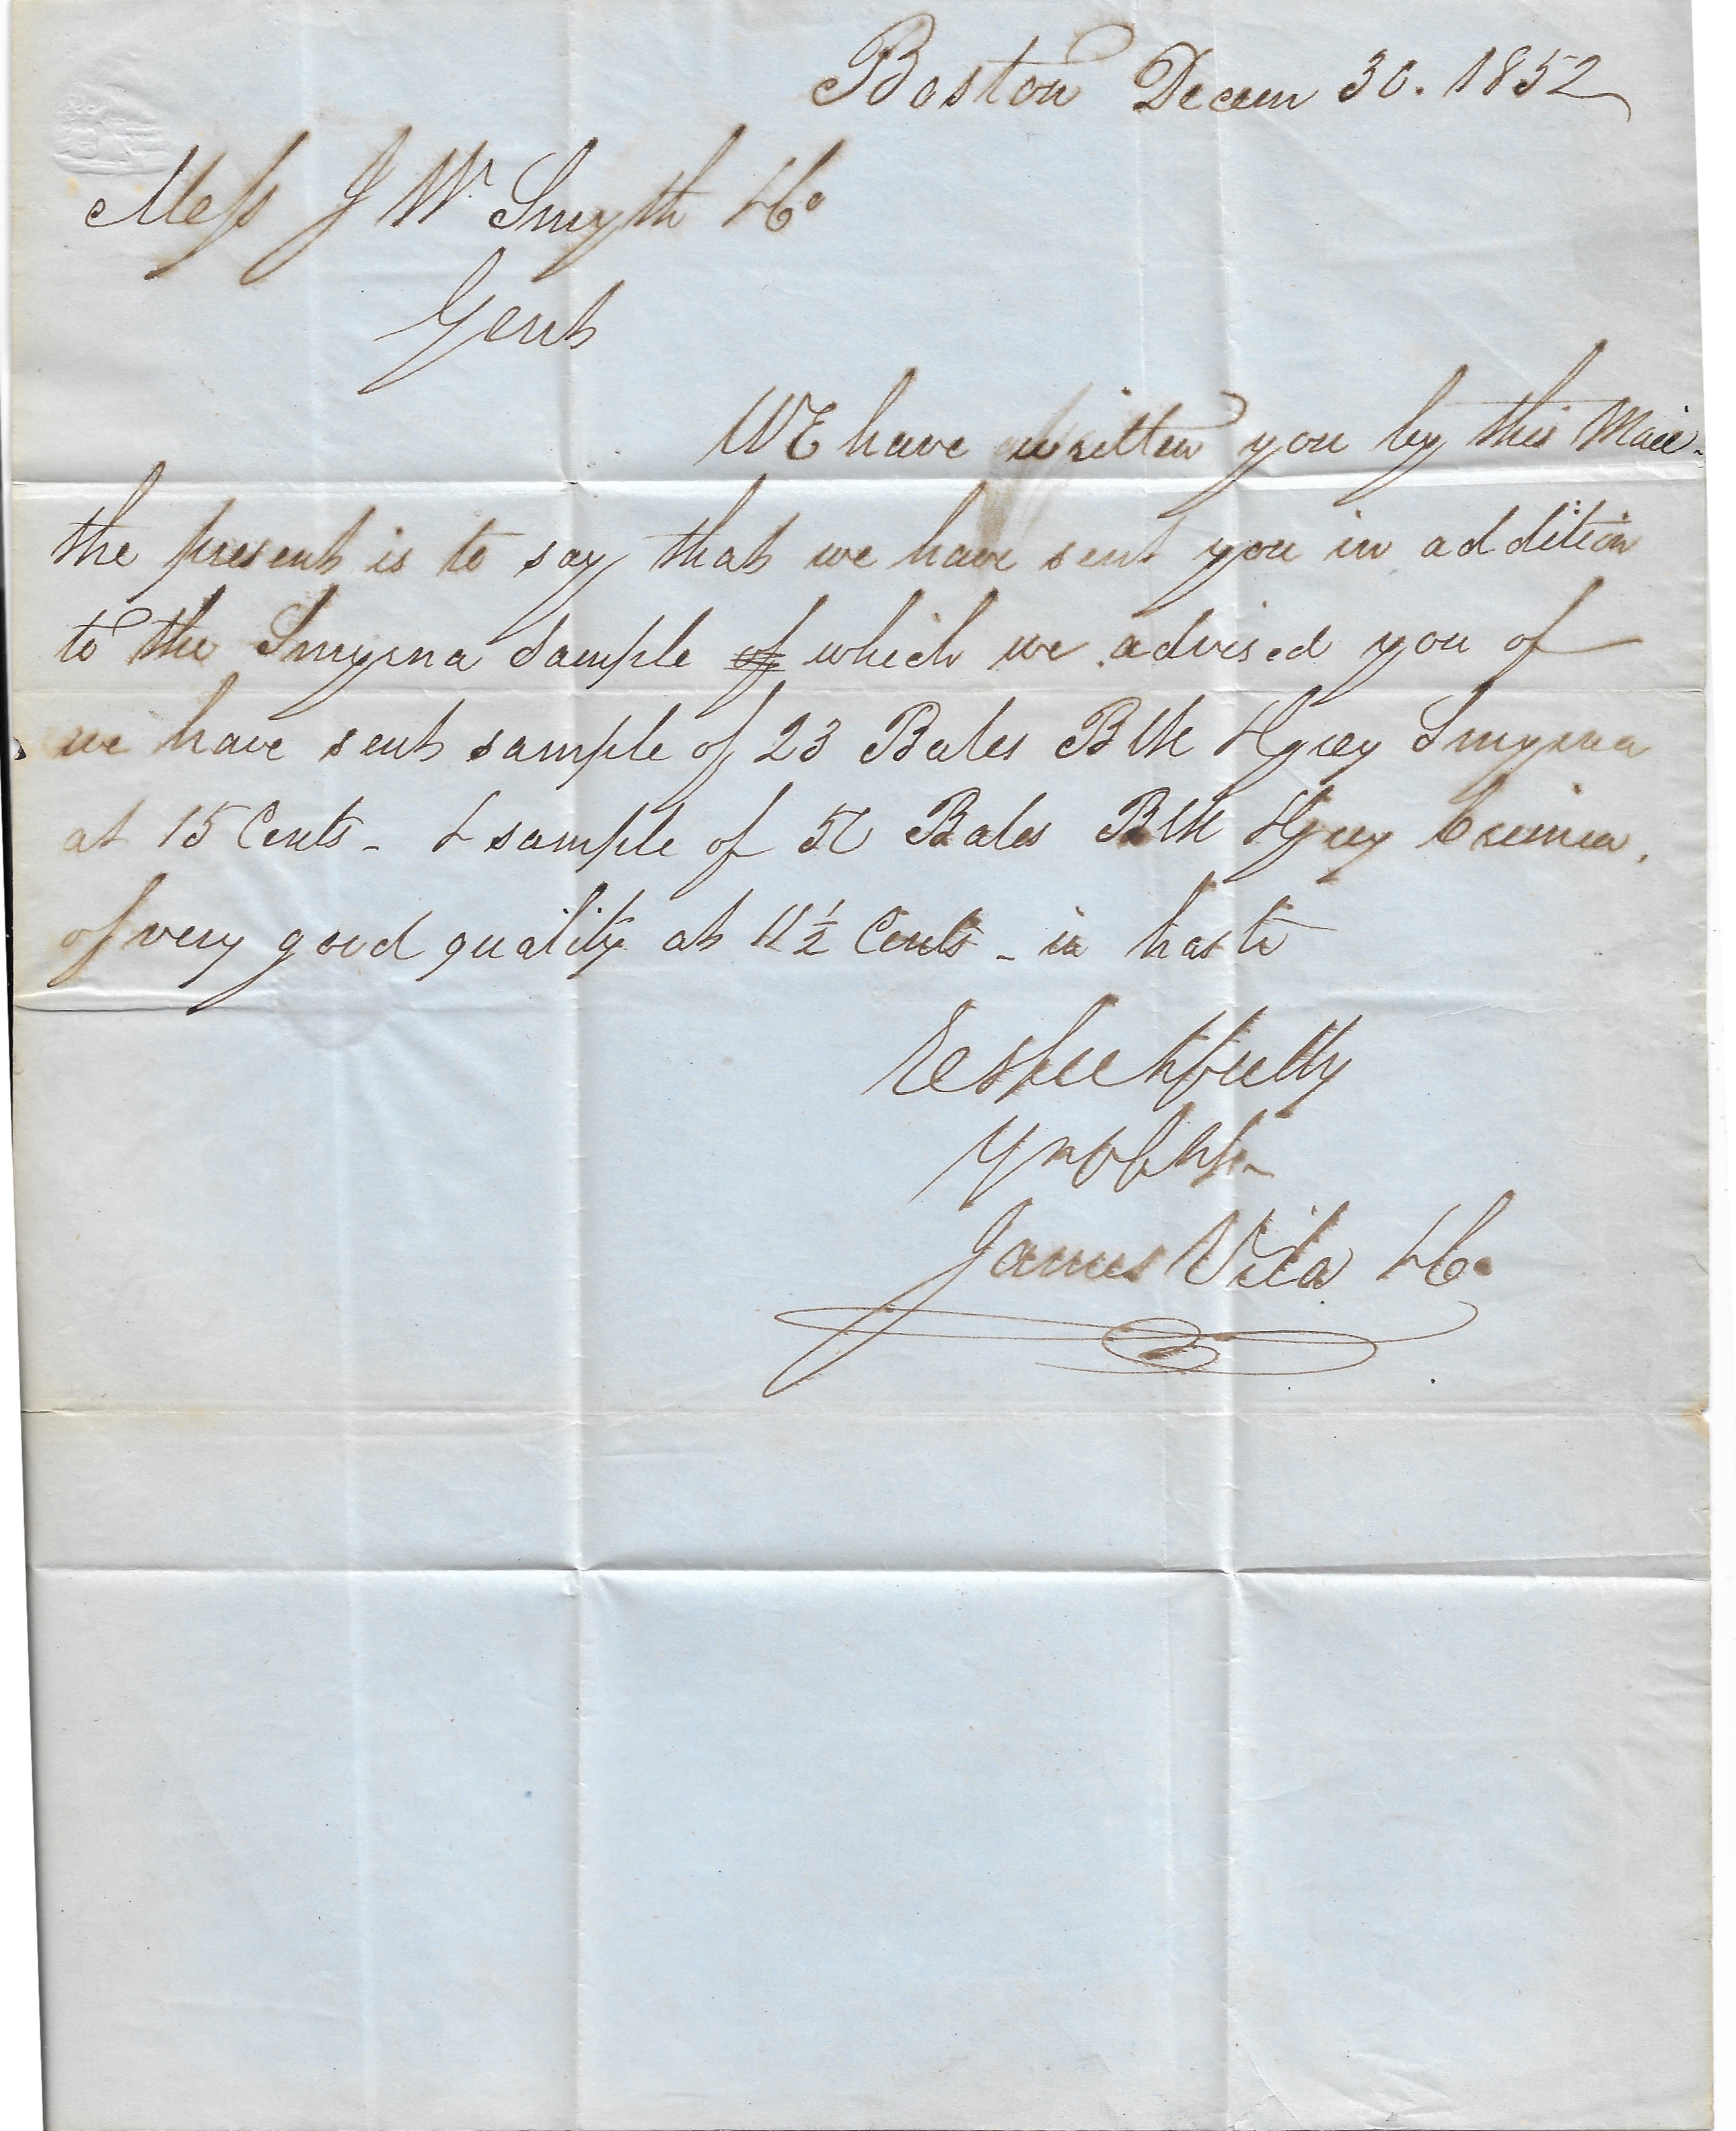 Boston Decem 30. 1852
Mess J W Smyth & Co
Gents
WE have written you by this Mail -
the present is to say that we have sent you in addition
to the Smyrna Sample of which we advised you of
we have sent sample of 23 Bales Blk & grey Smyrna
at 15 Cents - & sample of Bales Blk & grey Crimea.
of very good quality at 11½ Cents - in haste
Respectfully
James Vila & Co.